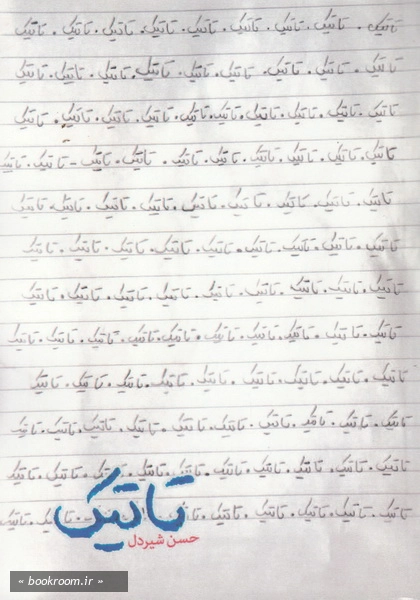 تاتیک . تاتیک . تاتیک . تاتیک . تاتیک . تاتیک . تاتیک . تاتیک . تاتیک
تاتیک . تاتیک . تاتیک . تاتیک . تاتیک . تاتیک . تاتیک . تاتیک . تاتیک
تاتیک . تاتیک . تاتیک . تاتیک . تاتیک . تاتیک . تاتیک . تاتیک . تاتیک . تاتیک
تاتیک . تاتیک . تاتیک . تاتیک . تاتیک . تاتیک . تاتیک . تاتیک - تاتیک . تاتیک
تاتیک . تاتیک . تاتیک . تاتیک . تاتیک . تاتیک . تاتیک . تاتیک . تاتیک
تاتیک . تاتیک . تاتیک . تاتیک . تاتیک . تاتیک . تاتیک . تاتیک . تاتیک
تاتیک . تاتیک . تاتیک . تاتیک . تاتیک . تاتیک . تاتیک . تاتیک . تاتیک
تاتیک . تاتیک . تاتیک . تاتیک . تاتیک . تاتیک . تاتیک . تاتیک . تاتیک . تاتیک
تاتیک . تاتیک . تاتیک . تاتیک . تاتیک . تاتیک . تاتیک . تاتیک . تاتیک
تاتیک . تاتیک . تاتیک . تاتیک . تاتیک . تاتیک . تاتیک . تاتیک . تاتیک . تاتیک
تاتیک . تاتیک . تاتیک . تاتیک . تاتیک . تاتیک . تاتیک . تاتیک . تاتیک . تاتیک
تاتیک . تاتیک . تاتیک . تاتیک . تاتیک . تاتیک
تاتیک
حسن شیردل
« bookroom.ir »